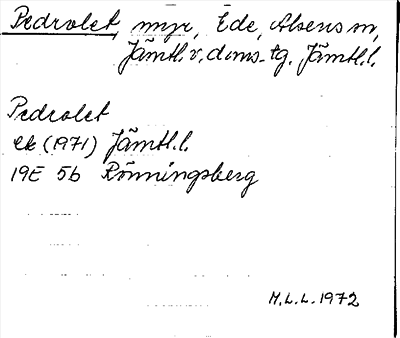 Pedrolet, myr, Ede, Alsens sn,
Jämtl. v. doms-tg. Jämtl.l.
Pedrolet
ek (1971) Jämtl.l.
19E 5b Rönningsberg
M.L.L. 1972